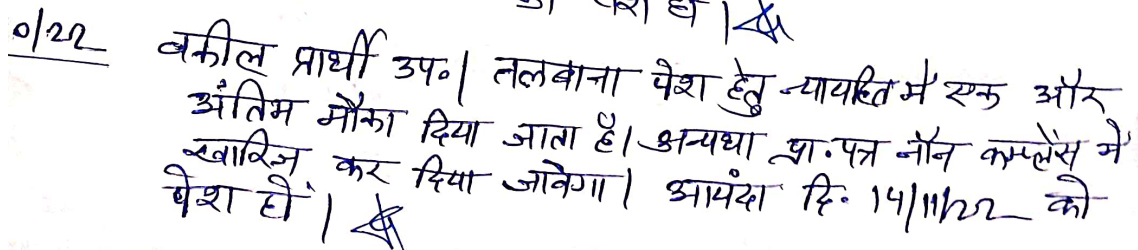 को पेश हो।
0/22 वकील प्रार्थी उप०। तलबाना पेश हेतु न्यायहित में एक और
अंतिम मौका दिया जाता है। अन्यथा प्रा.पत्र नॉन कम्प्लेंस में
खारिज कर दिया जावेगा। आयंदा दि. 14/11/22 को
पेश हो।